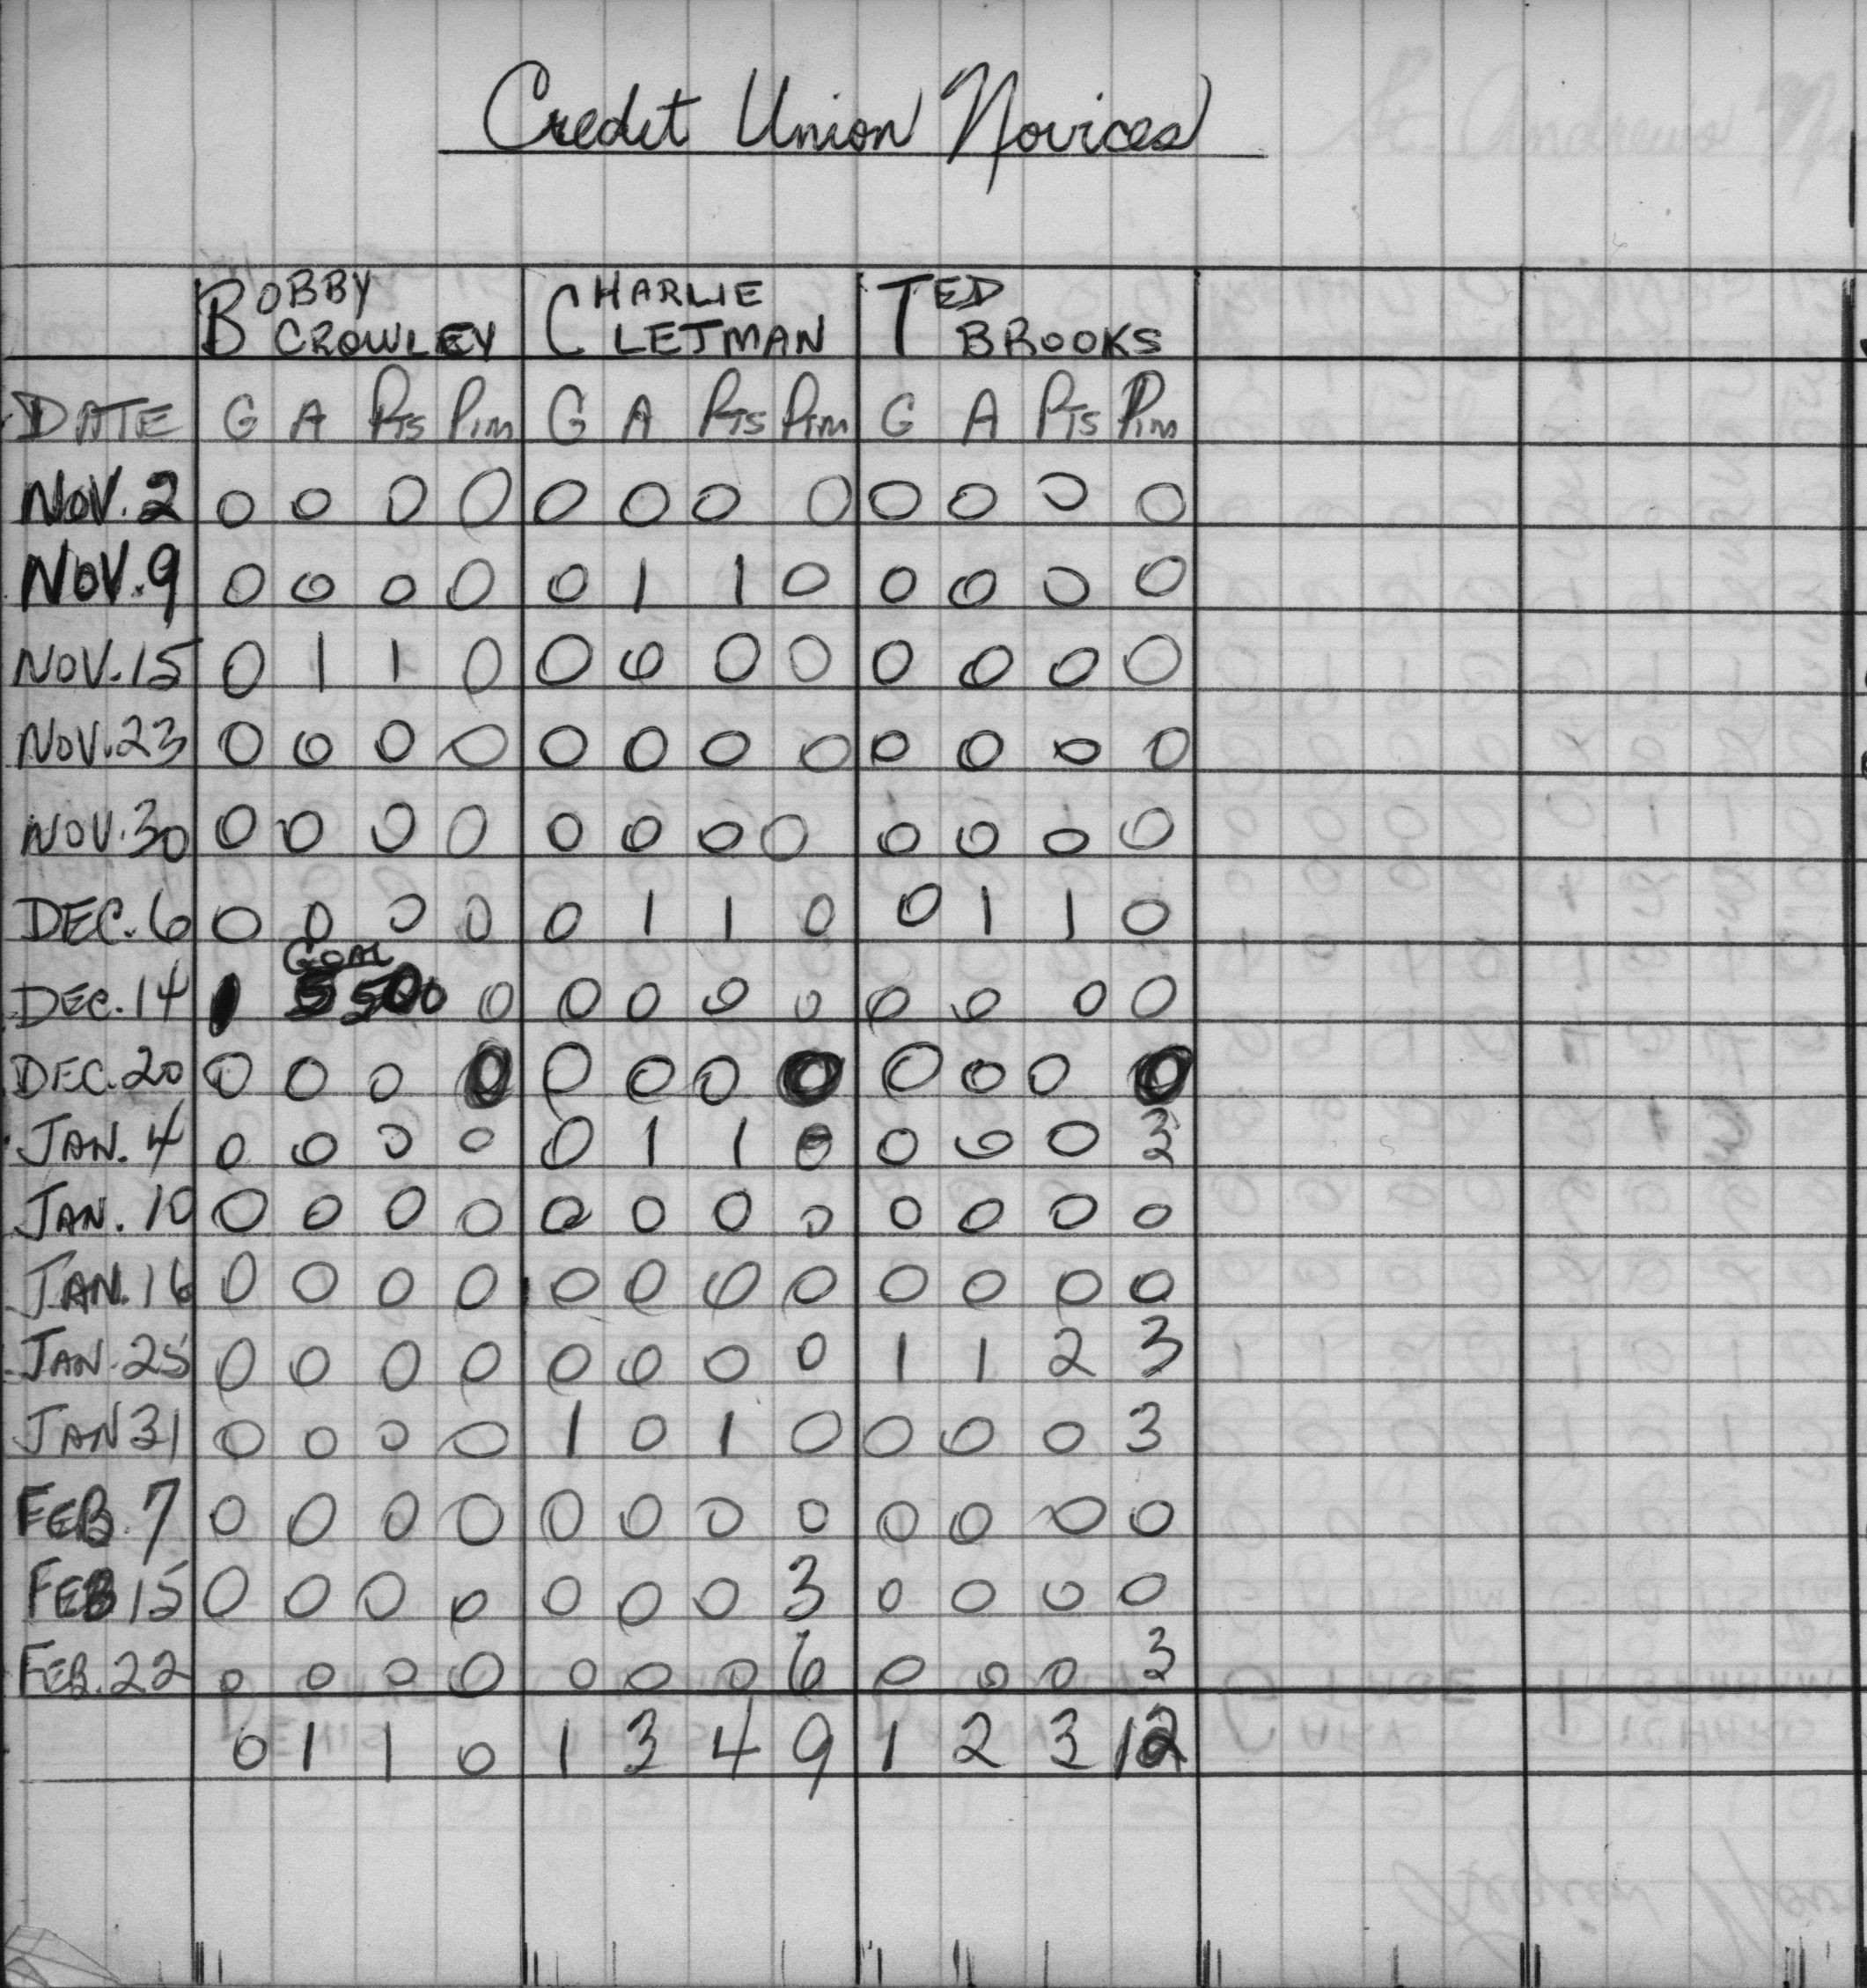 Credit Union Novices
BOBBY CROWLEY CHARLIE LETMAN TED BROOKS
DATE G A Pts Pim G A Pts Pim G A Pts Pim
NOV. 2 0 0 0 0 0 0 0 0 0 0 0 0
NOV. 9 0 0 0 0 0 1 1 0 0 0 0 0
NOV. 15 0 1 1 0 0 0 0 0 0 0 0 0
NOV. 23 0 0 0 0 0 0 0 0 0 0 0 0
NOV. 30 0 0 0 0 0 0 0 0 0 0 0 0
DEC. 6 0 0 0 0 0 1 1 0 0 1 1 0
DEC. 14 0 0 0 0 0 0 0 0 0 0
DEC. 20 0 0 0 0 0 0 0 0 0 0 0 0
JAN. 4 0 0 0 0 0 1 1 0 0 0 0 3
JAN. 10 0 0 0 0 0 0 0 0 0 0 0 0
JAN. 16 0 0 0 0 0 0 0 0 0 0 0 0
JAN. 25 0 0 0 0 0 0 0 0 1 1 2 3
JAN 31 0 0 0 0 1 0 1 0 0 0 0 3
FEB. 7 0 0 0 0 0 0 0 0 0 0 0 0
FEB 15 0 0 0 0 0 0 0 3 0 0 0 0
FEB. 22 0 0 0 0 0 0 0 6 0 0 0 3
0 1 1 0 1 3 4 9 1 2 3 12